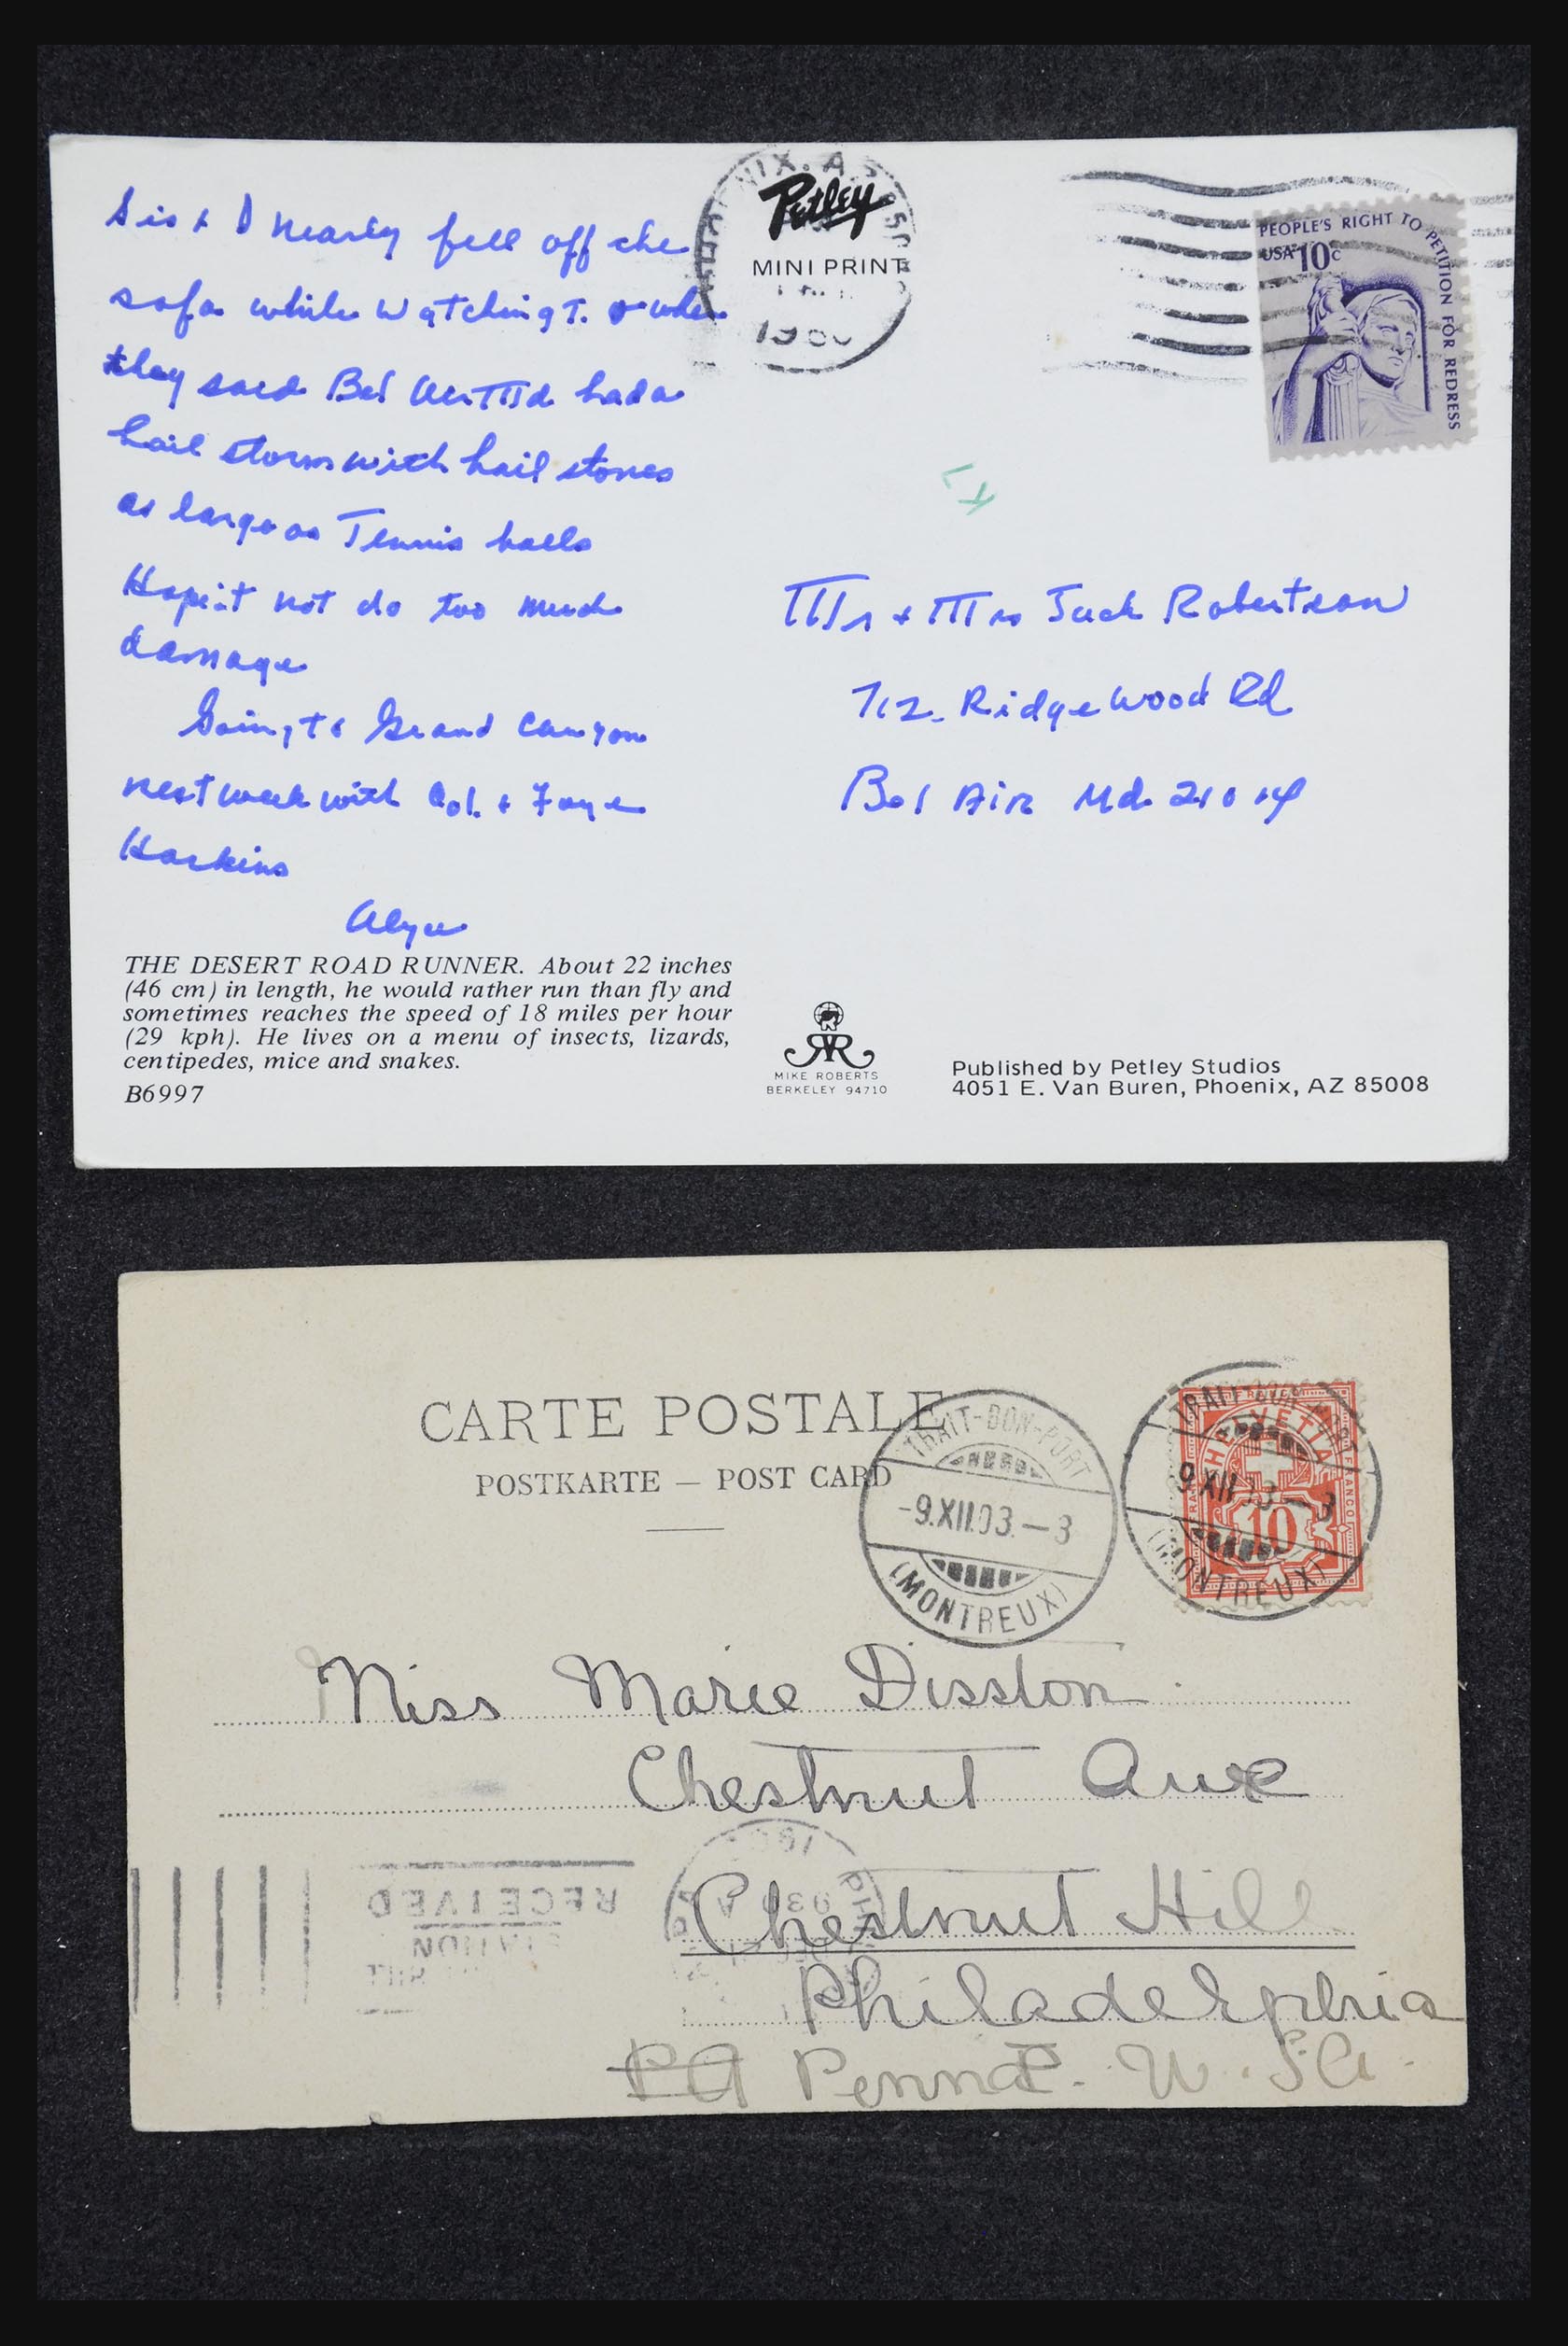 Sis & I nearly fell off the
sofa while watching T. V when
they said Bel Air Md had a
hail storm with hail stones
as large as Tennis balls
Hope it not do too much
damage
Going to Grand Canyon
next week with Col. & Faye
Harkins
Alyce
THE DESERT ROAD RUNNER. About 22 inches
(46 cm) in length, he would rather run than fly and
sometimes reaches the speed of 18 miles per hour
(29 kph). He lives on a menu of insects, lizards,
centipedes, mice and snakes.
B6997
Petley
MINI PRINT
PEOPLE'S RIGHT TO PETITION FOR REDRESS
USA 10c
Mr & Mrs Jack Robertson
712 Ridgewood Rd
Bel Air Md. 21014
MIKE ROBERTS
BERKELEY 94710
Published by Petley Studios
4051 E. Van Buren, Phoenix, AZ 85008
CARTE POSTALE
POSTKARTE — POST CARD
TRAIT-BON-PORT
-9.XII.03.-3
(MONTREUX)
TRAIT-BON-PORT
9.XII.03-3
(MONTREUX)
HELVETIA
FRANCO
10
Miss Marie Disston
Chestnut Ave
Chestnut Hill
Philadelphia
PA Penna. U.S.A.
RECEIVED
STATION